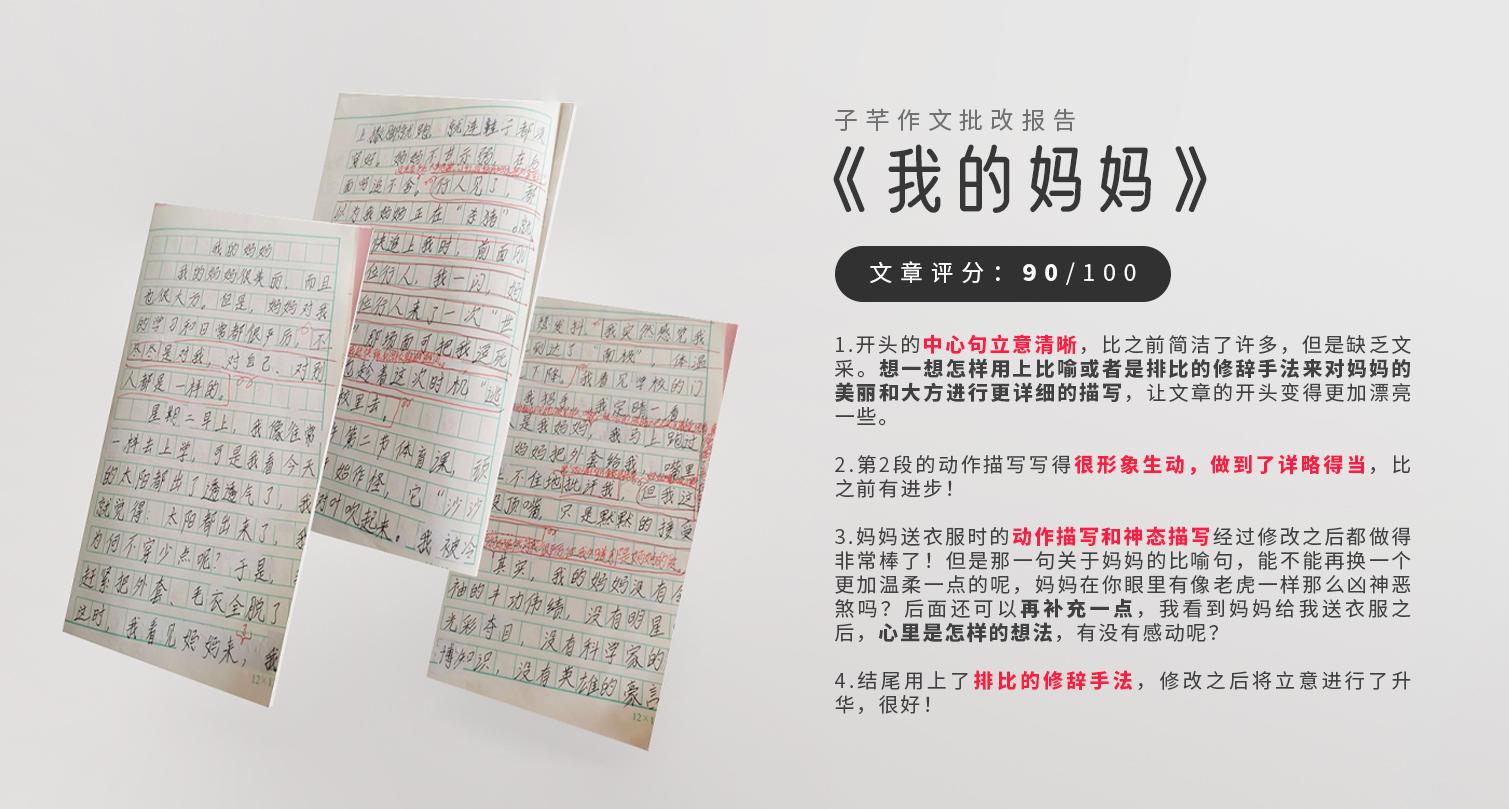 子芊作文批改报告
《我的妈妈》
文章评分：90/100
1.开头的中心句立意清晰，比之前简洁了许多，但是缺乏文
采。想一想怎样用上比喻或者是排比的修辞手法来对妈妈的
美丽和大方进行更详细的描写，让文章的开头变得更加漂亮
一些。
2.第2段的动作描写写得很形象生动，做到了详略得当，比
之前有进步！
3.妈妈送衣服时的动作描写和神态描写经过修改之后都做得
非常棒了！但是那一句关于妈妈的比喻句，能不能再换一个
更加温柔一点的呢，妈妈在你眼里有像老虎一样那么凶神恶
煞吗？后面还可以再补充一点，我看到妈妈给我送衣服之
后，心里是怎样的想法，有没有感动呢？
4.结尾用上了排比的修辞手法，修改之后将立意进行了升
华，很好！
我的妈妈
我的妈妈很美丽，而且
也很大方。但是，妈妈对我
的学习和日常都很严厉。不
只是对我，对自己、对别
人都是一样的。
星期二早上，我像往常
一样去上学，可是我看今天
的太阳都出了透透气了，我
就觉得：太阳都出来了，我
为何不穿少点呢？于是，
赶紧把外套、毛衣全脱了
这时，我看见妈妈来，我
12×1
上撒脚就跑，就连鞋子都没
穿好。妈妈不甘示弱，在后
面穷追不舍。行人见了，都
以为我妈妈正在“杀猪”。就
快追上我时，前面
位行人，我一闪，妈
位行人来了一次“世
”那场面可把我逗死
趁着这次时机“逃
校里去。
第二节体育课，頭
始作怪，它“沙沙
对叶吹起来。我被冷
想发抖。我突然感觉我
到达了“南极”，体温
下降。我看见学校的门
我招手，我定睛一看
是我妈妈，我马上跑过
妈妈把外套给我，嘴里
不住地批评我，但我这
没顶嘴，只是默默的接受
其实，我的妈妈没有
袖的丰功伟绩，没有明星
光彩夺目，没有科学家的
博知识，没有英雄的豪言
12×1